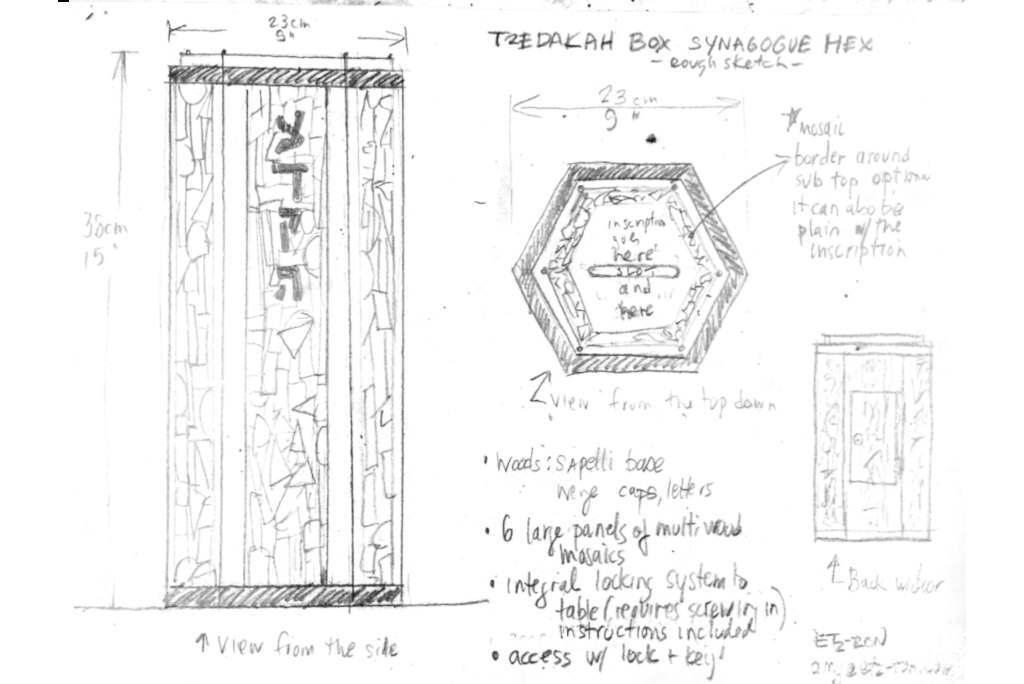 23cm
9"
38cm
15"
צ
ד
ק
ה
↑ View from the side
TZEDAKAH BOX SYNAGOGUE HEX
- rough sketch -
23 cm
9 "
* mosaic
border around
sub top optional
it can also be
plain w/ the
inscription
inscription
goes
here
SLOT
and
here
View from the top down
• Woods: SApelli base
wenge caps, letters
• 6 large panels of multi wood
mosaics
• integral locking system to
table (requires screwing in)
instructions included
• access w/ lock + key
↑ Back w/door
ETZ-RON